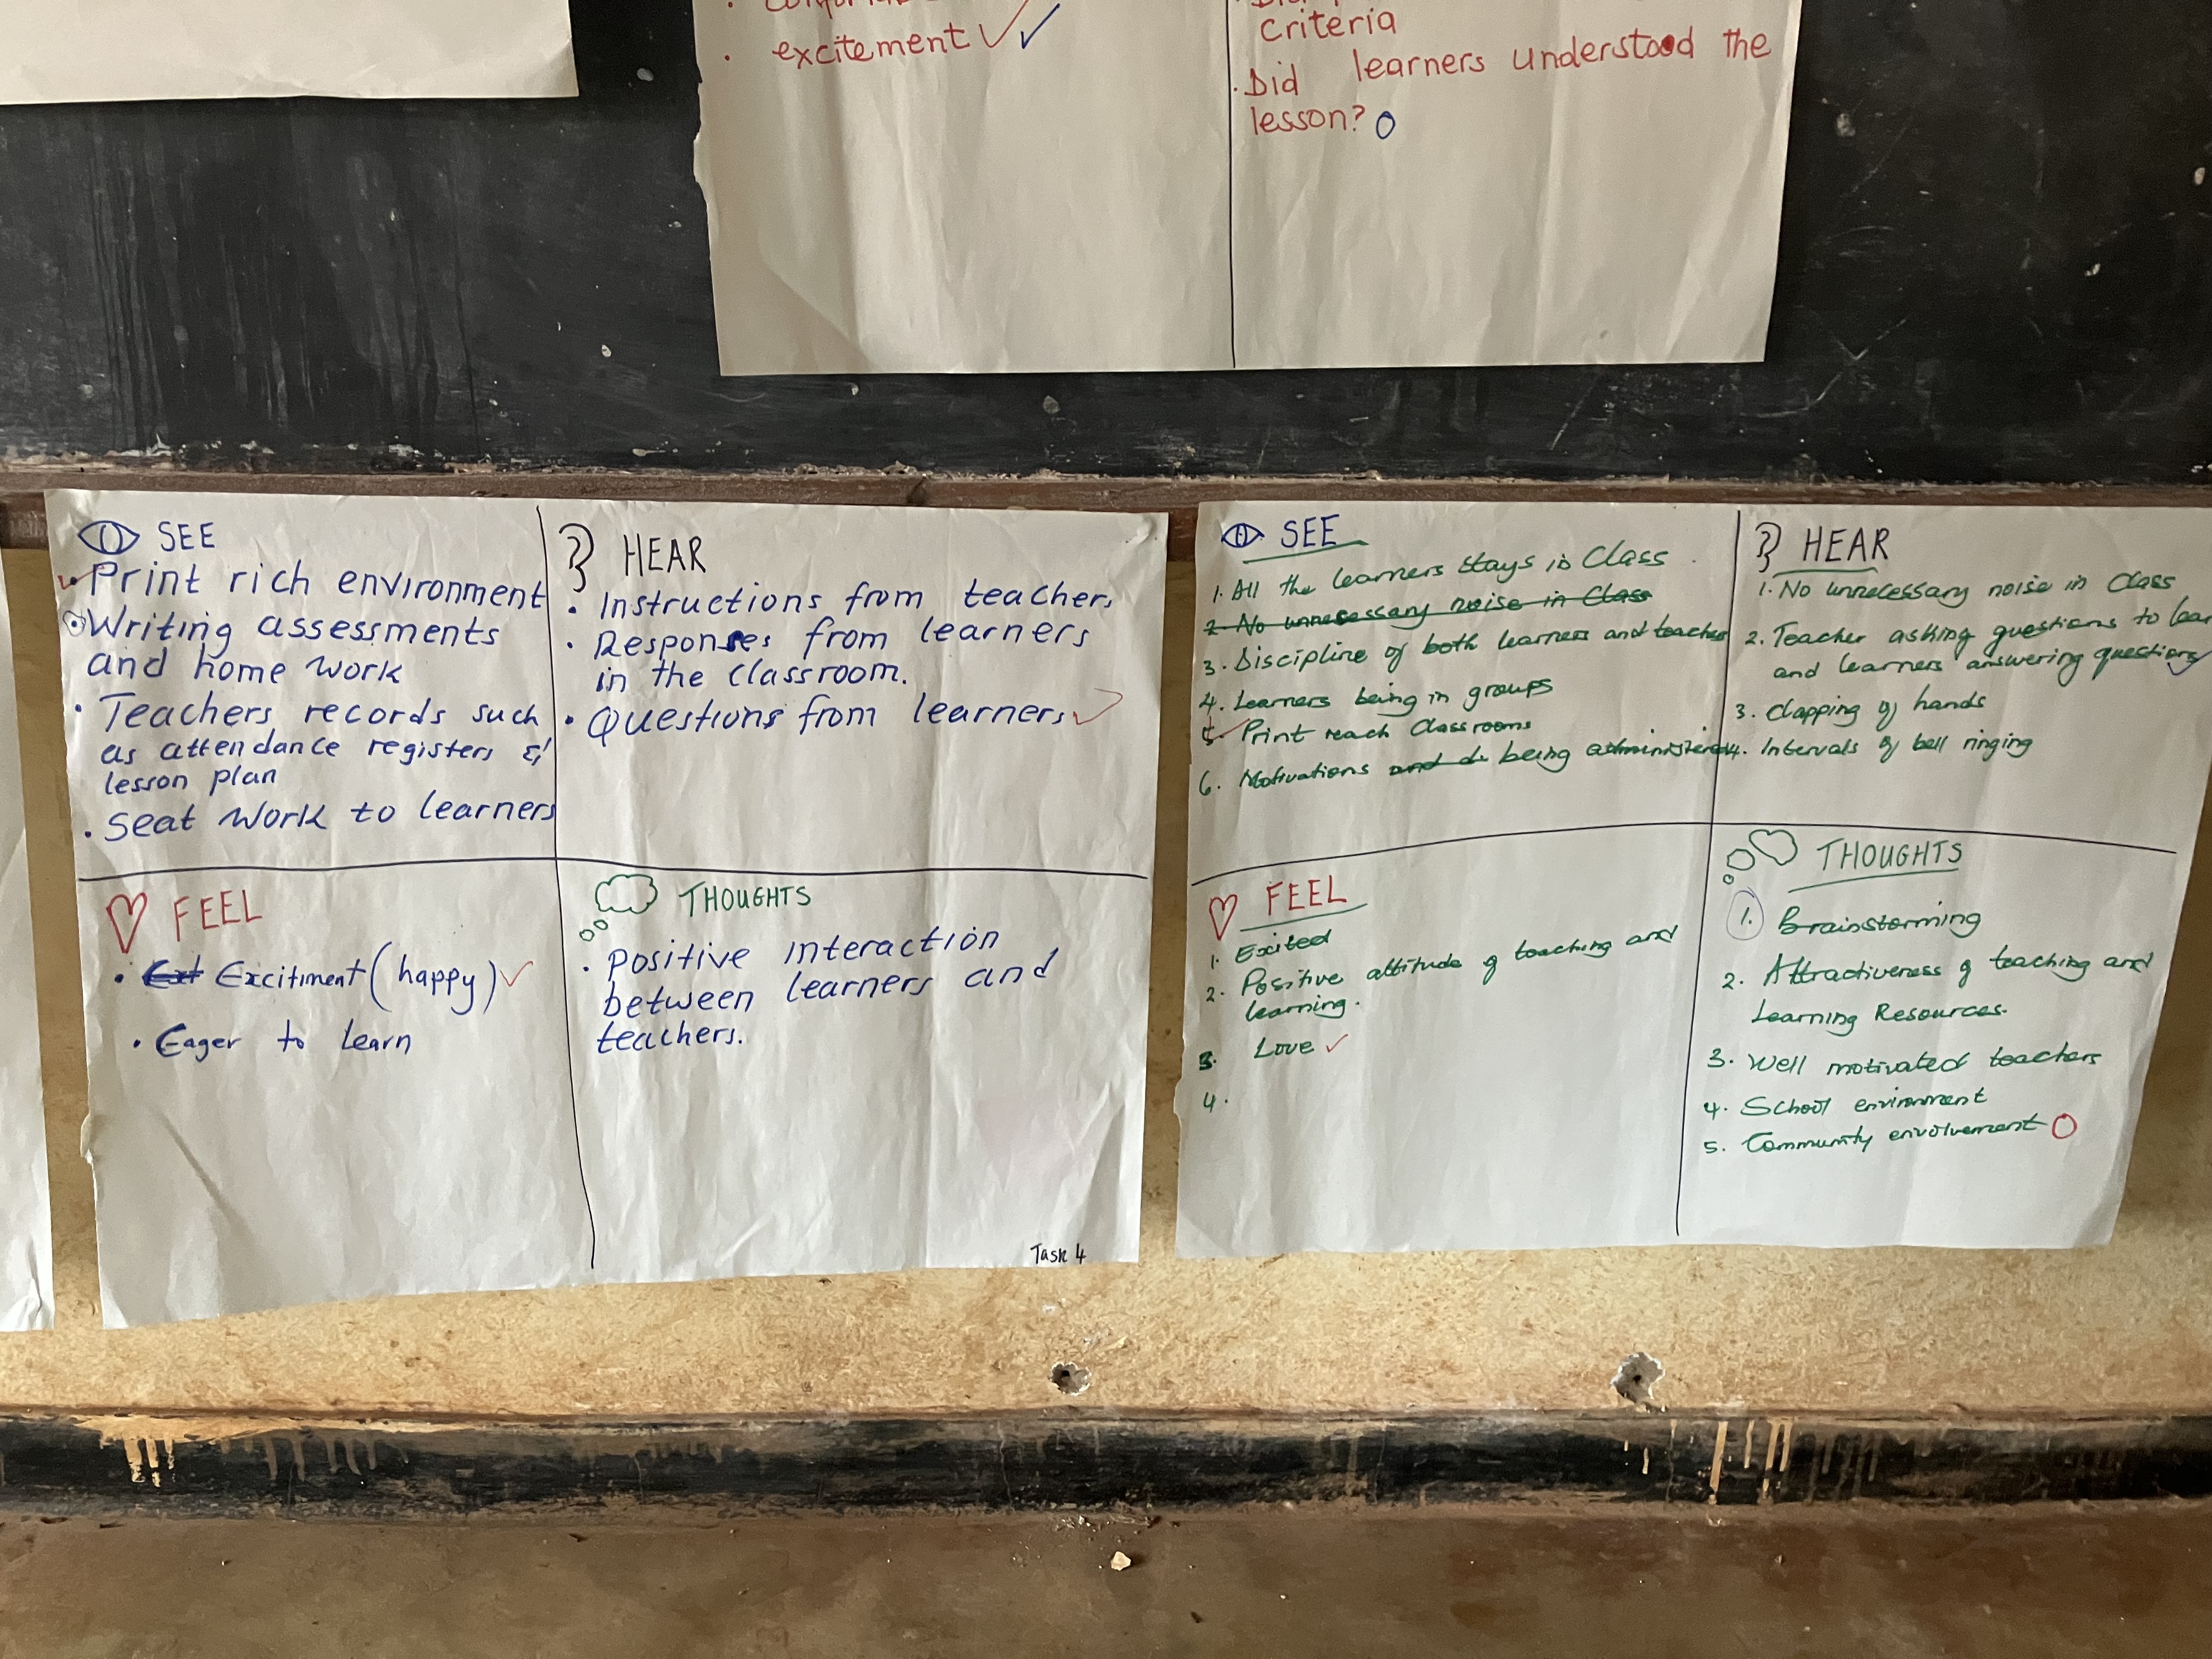 excitement
Criteria
Did learners understood the
lesson?
SEE
Print rich environment
Writing assessments
and home work
Teachers records such
as attendance registers &
lesson plan
Seat work to learners
HEAR
Instructions from teacher.
Responses from learners
in the classroom.
Questions from learners
FEEL
Ext Excitiment (happy)
Eager to learn
THOUGHTS
Positive interaction
between learners and
teachers.
Task 4
SEE
1. All the learners stays in Class
2. No unnecessary noise in Class
3. Discipline of both learners and teacher
4. Learners being in groups
5. Print reach Classrooms
6. Motivations and being administered
HEAR
1. No unnecessary noise in Class
2. Teacher asking questions to lear
and learners answering questions
3. Clapping of hands
4. Intervals of bell ringing
FEEL
1. Excited
2. Positive attitude of teaching and
learning.
3. Love
4.
THOUGHTS
1. Brainstorming
2. Attractiveness of teaching and
Learning Resources.
3. Well motivated teachers
4. School environment
5. Community envolvement